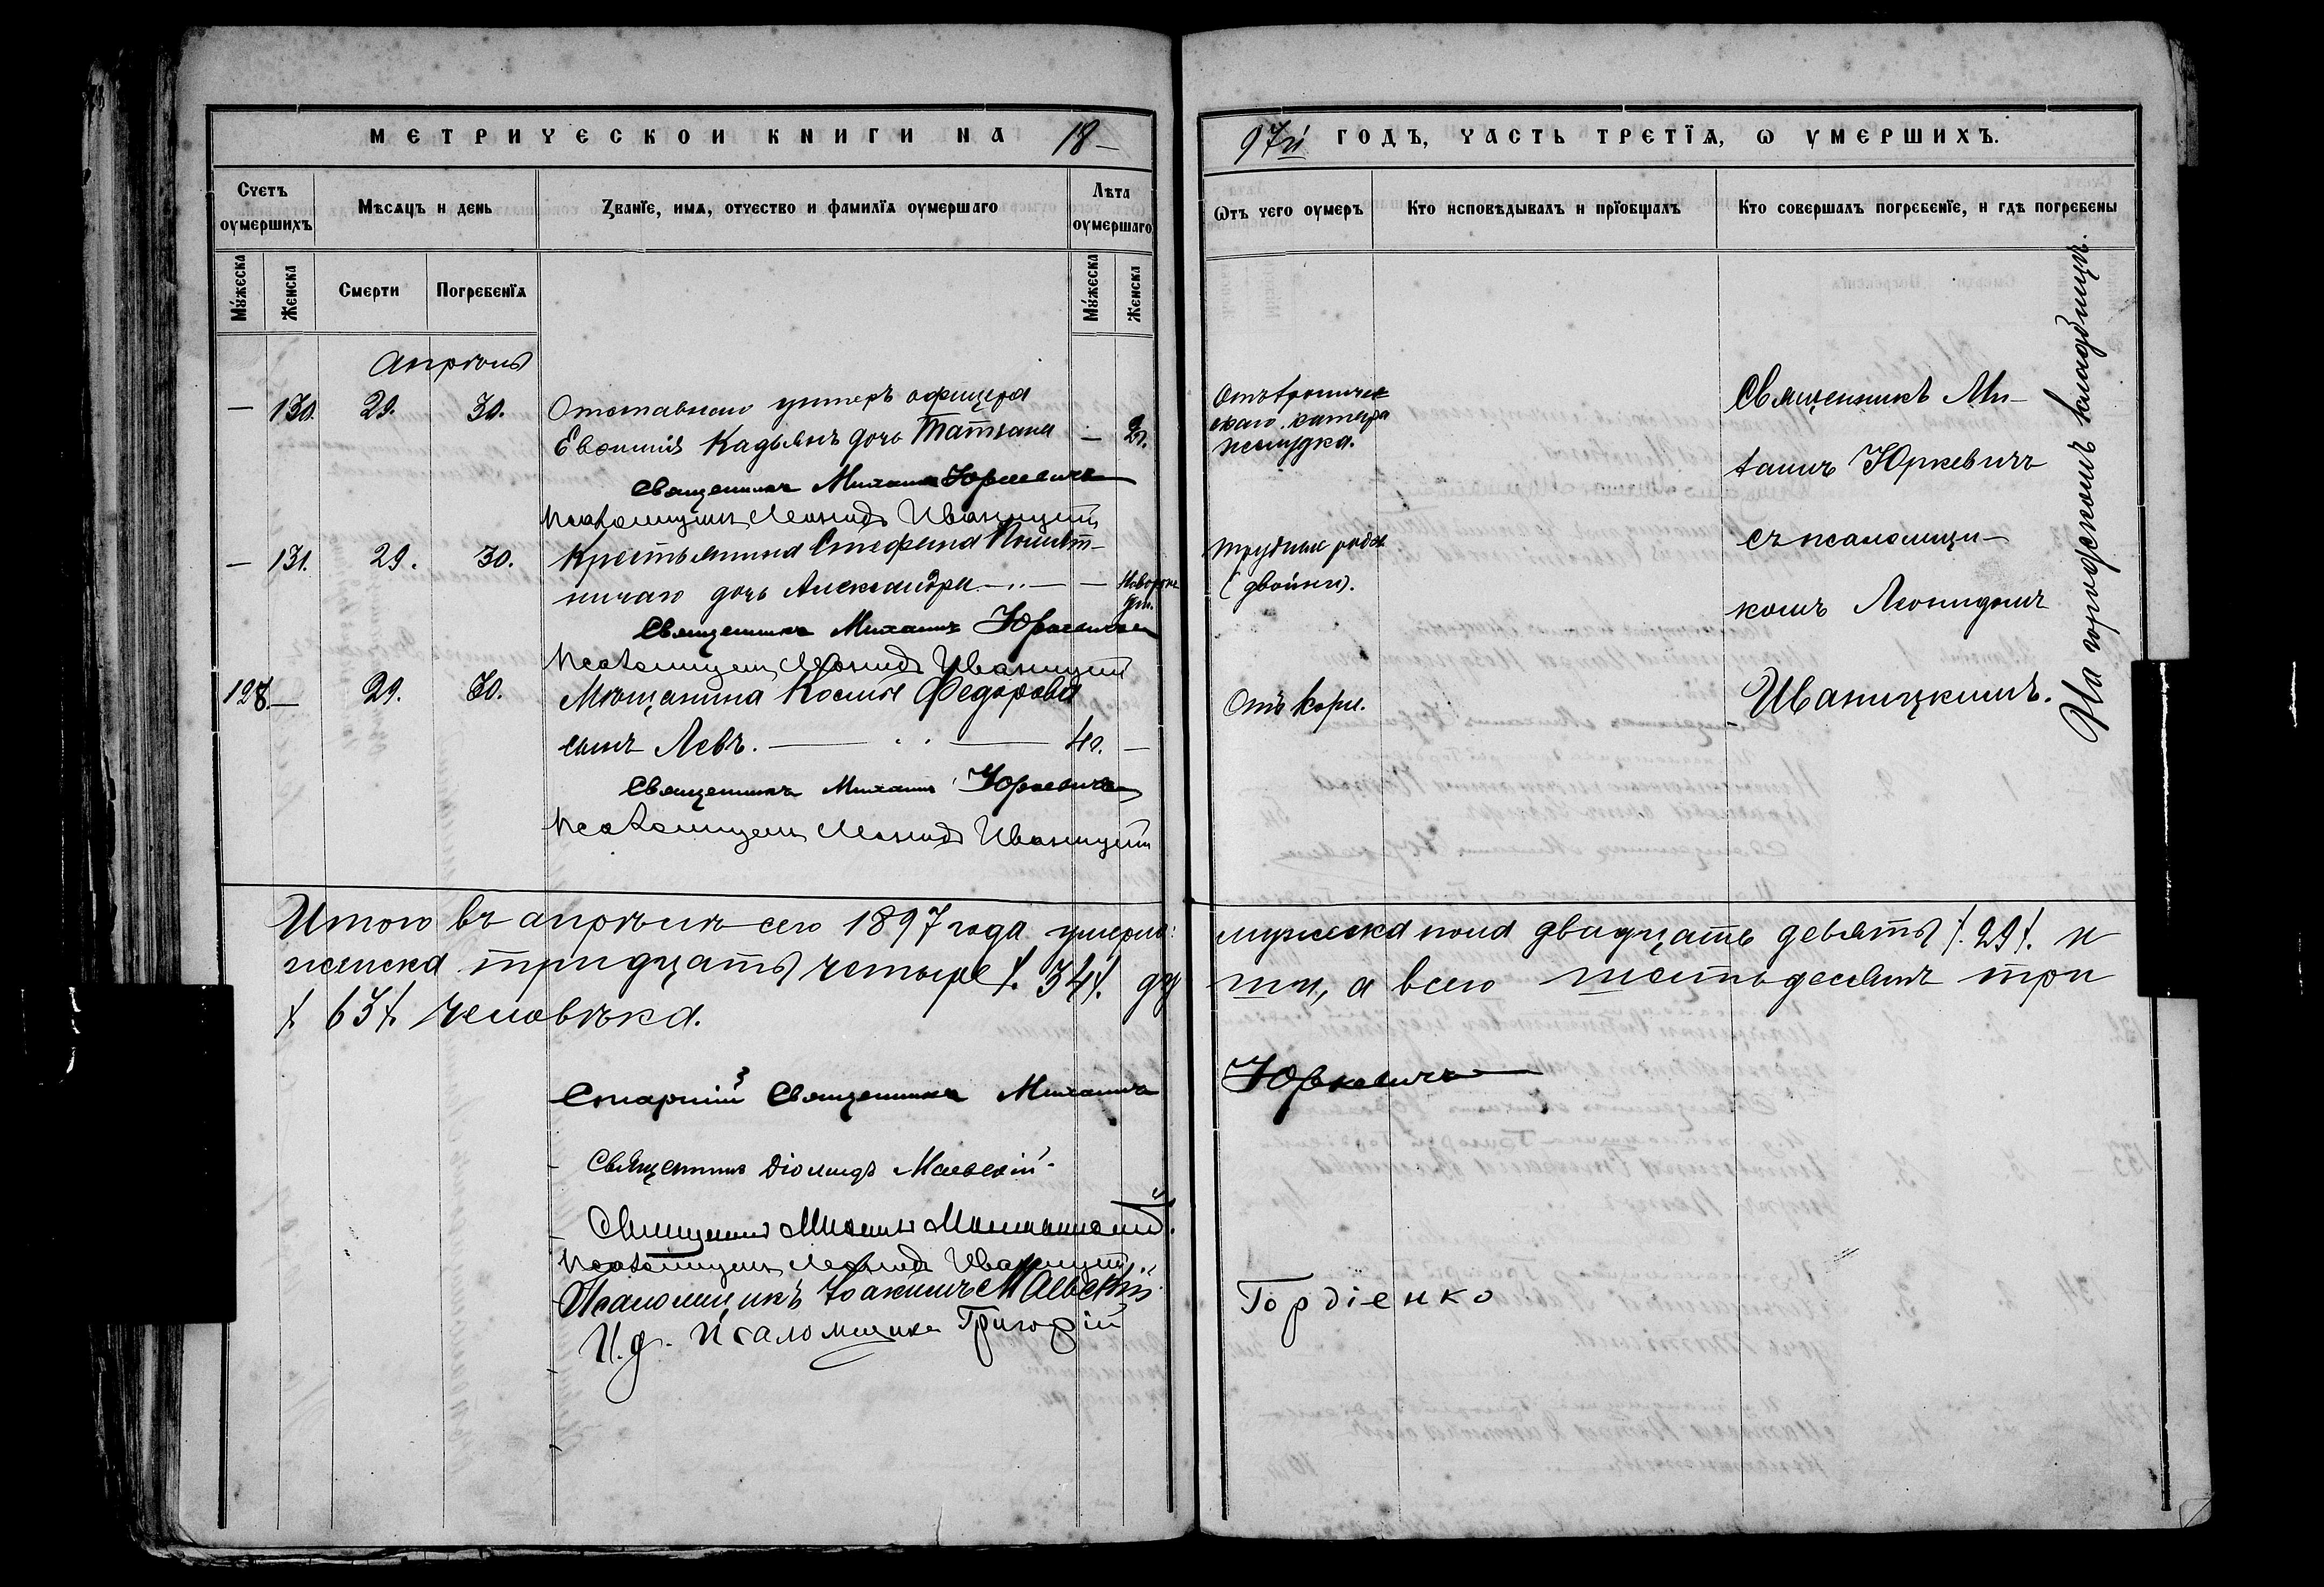 МЕТРИЧЕСКОЙ КНИГИ НА 18
97й ГОДЪ, ЧАСТЬ ТРЕТІЯ, Ѡ УМЕРШИХЪ.
Счетъ оумершихъ
Мѣсяцъ и день
Званіе, имя, отчество и фамилія оумершаго
Лѣта оумершаго
Ѿтъ чего оумеръ
Кто исповѣдывалъ и пріобщалъ
Кто совершалъ погребеніе, и гдѣ погребены
Мужеска
Женска
Смерти
Погребенія
Мужеска
Женска
Апрѣль
— 130. 29. 30. Отставнаго унтеръ офицера
Евфимія Кадьянъ дочь Татіана — 2.
Священникъ Михаилъ Юркевичъ
Псаломщикъ Леонидъ Иваницкій
— 131. 29. 30. Крестьянина Стефана
ничаго дочь Александра —Новорож
ден.
Священникъ Михаилъ Юркевичъ
Псаломщикъ Леонидъ Иваницкій
128. — 29. 30. Мѣщанина Космы Федорова
сынъ Левъ. — —
Священникъ Михаилъ Юркевичъ
Псаломщикъ Леонидъ Иваницкій
Отъ хроничес
скаго катара
желудка.
Трудные роды
(двойни).
Отъ кори.
Священникъ Ми-
хаилъ Юркевичъ
съ псаломщи-
комъ Леонидомъ
Иваницкимъ.
На городскомъ кладбищѣ.
Итого въ апрѣлѣ сего 1897 года умерло: мужеска пола двадцать девять /. 29 /. и
женска тридцать четыре /. 34 /. ду ши, а всего шестьдесятъ три
/. 63 /. человѣка.
Старшій Священникъ Михаилъ Юркевичъ
Священникъ Діомидъ Маевскій.
Священникъ
Псаломщикъ Леонидъ Иваницкій
Псаломщикъ Іоакимъ Маевскій
И. д. Псаломщика Григорій Гордіенко